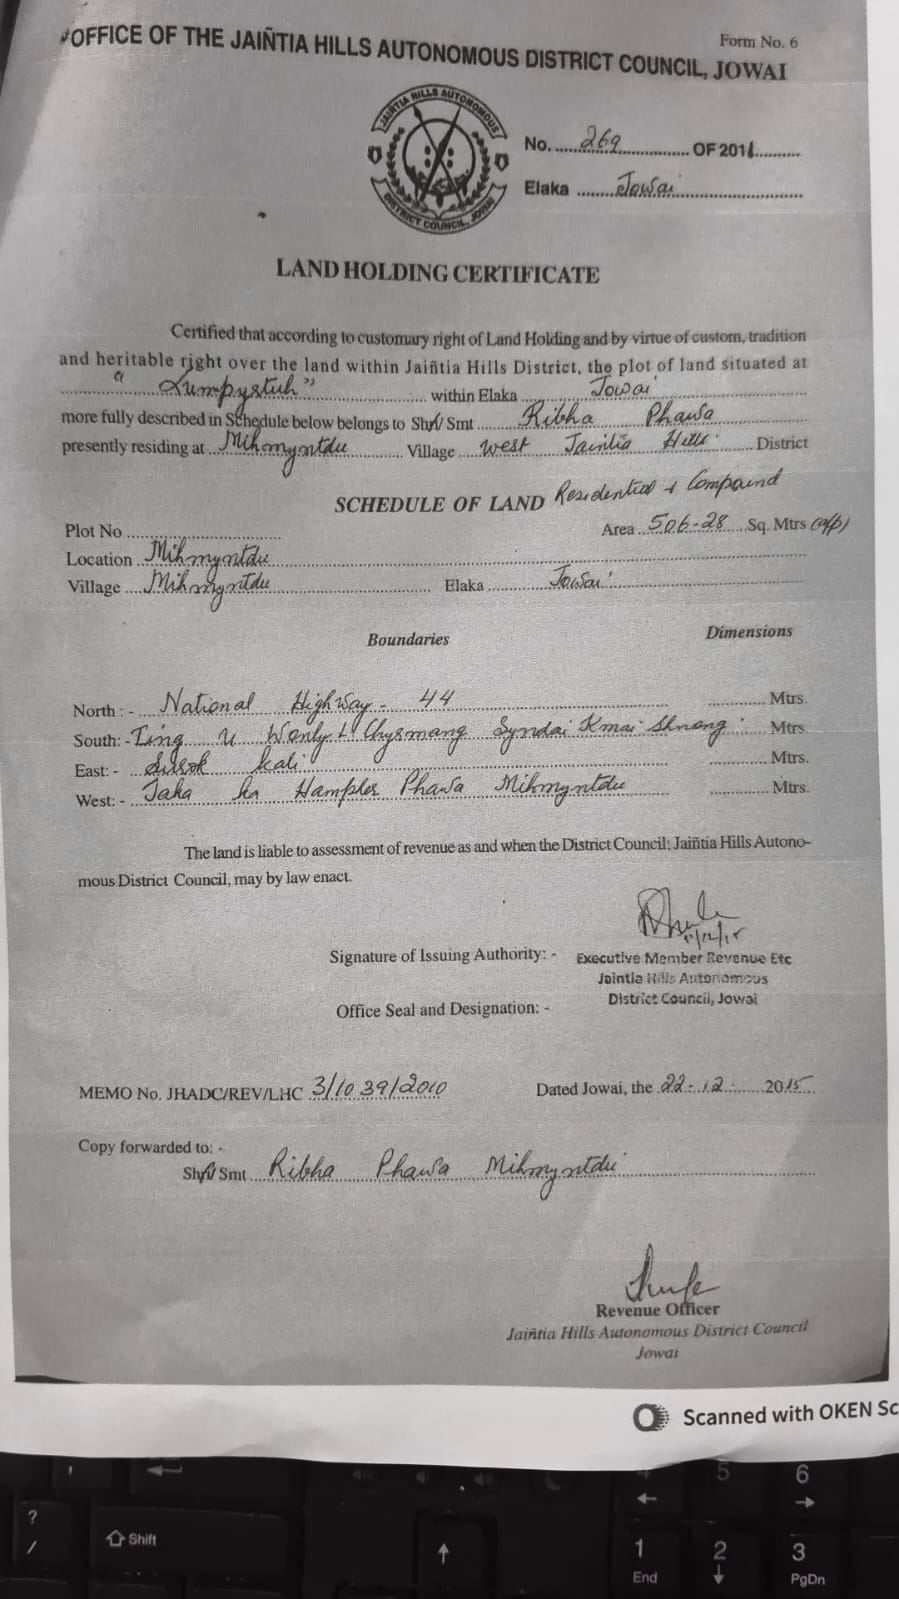 OFFICE OF THE JAIÑTIA HILLS AUTONOMOUS DISTRICT COUNCIL, JOWAI
Form No. 6
JAIÑTIA HILLS AUTONOMOUS
DISTRICT COUNCIL, JOWAI
No. 269 OF 2011
Elaka Jowai
LAND HOLDING CERTIFICATE
Certified that according to customary right of Land Holding and by virtue of custom, tradition
and heritable right over the land within Jaiñtia Hills District, the plot of land situated at
"Lumpystuh" within Elaka Jowai
more fully described in Schedule below belongs to Shri/ Smt Ribha Phawa
presently residing at Mihmyntdu Village West Jaintia Hills District
SCHEDULE OF LAND Residential + Compound
Plot No Area 506-28 Sq. Mtrs
Location Mihmyntdu
Village Mihmyntdu Elaka Jowai
Boundaries Dimensions
North : - National Highway - 44 Mtrs.
South: - Ïing u Wenly + Chysmang Syndai Kmai Shnong Mtrs.
East: - Surok Kali Mtrs.
West: - Jaka ka Hampler Phawa Mihmyntdu Mtrs.
The land is liable to assessment of revenue as and when the District Council; Jaiñtia Hills Autono-
mous District Council, may by law enact.
Signature of Issuing Authority: - Executive Member Revenue Etc
Jaintia Hills Autonomous
District Council, Jowai
Office Seal and Designation: -
MEMO No. JHADC/REV/LHC 3/1039/2010 Dated Jowai, the 22-12- 2015
Copy forwarded to: -
Shri/ Smt Ribha Phawa Mihmyntdu
Revenue Officer
Jaiñtia Hills Autonomous District Council
Jowai
Scanned with OKEN Sc
5 6
? / Shift 1 End 2 3 PgDn